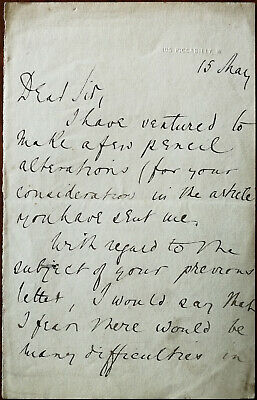 105 PICCADILLY, W.
15 May
Dear Sir,
I have ventured to
make a few pencil
alterations (for your
consideration) in the article
you have sent me.
With regard to the
subject of your previous
letter, I would say that
I fear there would be
many difficulties in